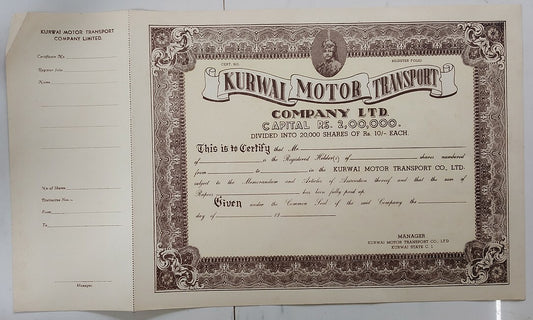 KURWAI MOTOR TRANSPORT
COMPANY LIMITED.
Certificate No.
Register folio
Name
No of Shares
Distinctive Nos.
From
To
Manager
CERT. NO.
REGISTER FOLIO
KURWAI MOTOR TRANSPORT
COMPANY LTD.
CAPITAL RS. 2,00,000.
DIVIDED INTO 20,000 SHARES OF Rs. 10/- EACH.
This is to Certify that Mr.
of is the Registered Holder(s) of shares numbered
from to in the KURWAI MOTOR TRANSPORT CO., LTD.
subject to the Memorandum and Articles of Association thereof and that the sum of
Rupees has been fully paid up.
Given under the Common Seal of the said Company the
day of 19
MANAGER
KURWAI MOTOR TRANSPORT CO., LTD
KURWAI STATE C. I